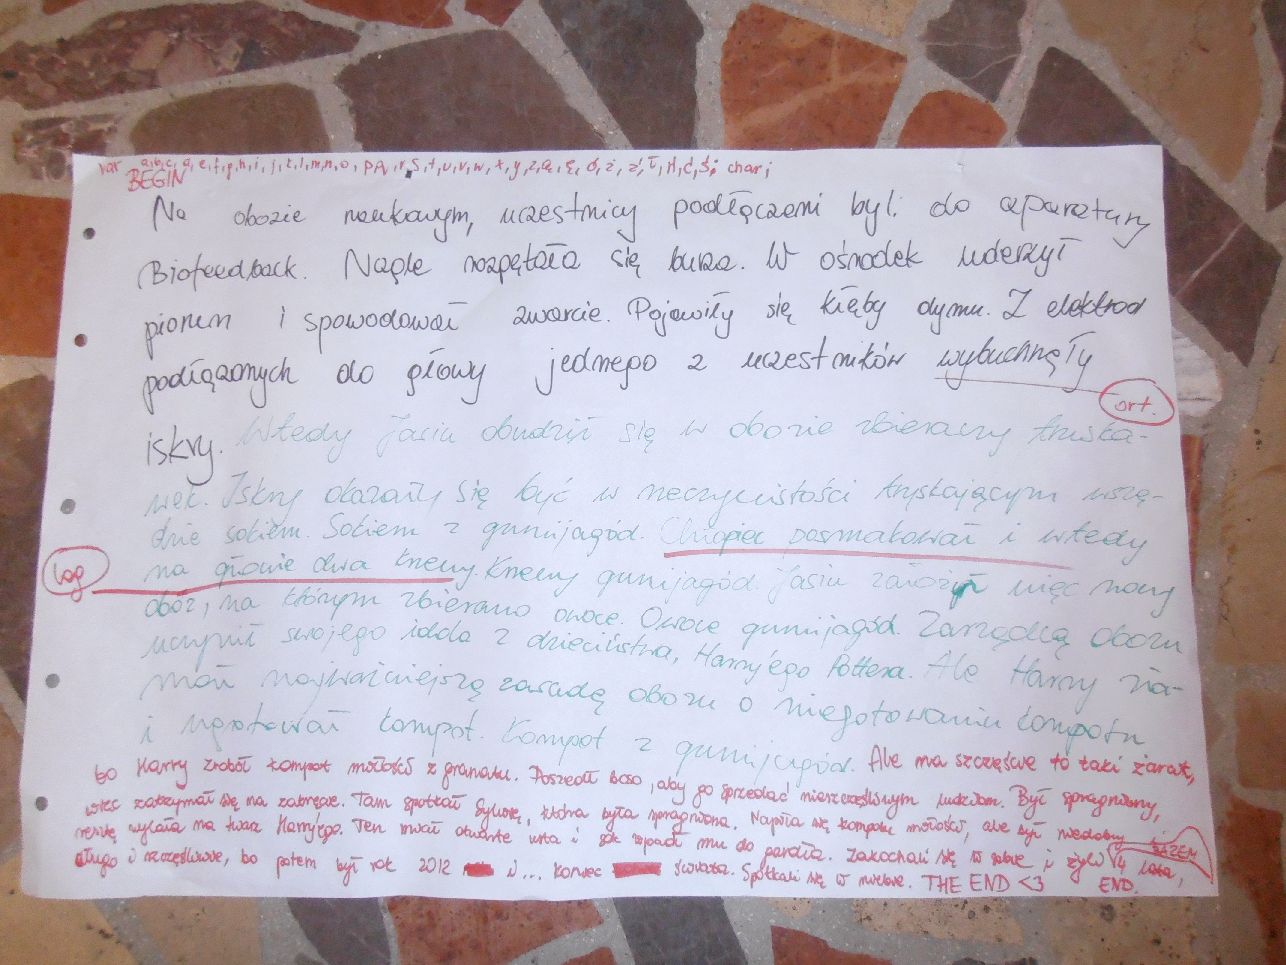 var a,b,c,d,e,f,g,h,i,j,k,l,m,n,o,p,q,r,s,t,u,v,w,x,y,z,ą,ę,ó,ż,ź,ł,ń,ć,ś: char;
BEGIN
Na obozie naukowym, uczestnicy podłączeni byli do aparatury
Biofeedback. Nagle rozpętała się burza. W ośrodek uderzył
piorun i spowodował zwarcie. Pojawiły się kłęby dymu. Z elektrod
podłączonych do głowy jednego z uczestników wybuchnęły
ort.
iskry. Wtedy Jasiu obudził się w obozie zbieraczy truska-
wek. Iskry okazały się być w rzeczywistości tryskającym wszę-
dzie sokiem. Sokiem z gumijagód. Chłopiec posmakował i wtedy
log
na głowie dwa krzewy. Krzewy gumijagód. Jasiu założył więc nowy
obóz, na którym zbierano owoce. Owoce gumijagód. Zarządcą obozu
uczynił swojego idola z dzieciństwa, Harry'ego Pottera. Ale Harry zła-
mał najważniejszą zasadę obozu o niegotowaniu kompotu
i ugotował kompot. Kompot z gumijagód. Ale na szczęście to taki żarcik,
bo Harry zrobił kompot miłości z granatu. Poszedł boso, aby go sprzedać nieszczęśliwym ludziom. Był spragniony,
więc zatrzymał się na zakręcie. Tam spotkał która była spragniona. Napiła się kompotu miłości, ale był niedobry i
resztę wylała na twarz Harry'ego. Ten miał otwarte usta i sok wpadł mu do gardła. Zakochali się w sobie i żyli RAZEM 4 lata,
długo i szczęśliwie, bo potem był rok 2012 i... koniec świata. Spotkali się w niebie. THE END <3 END.